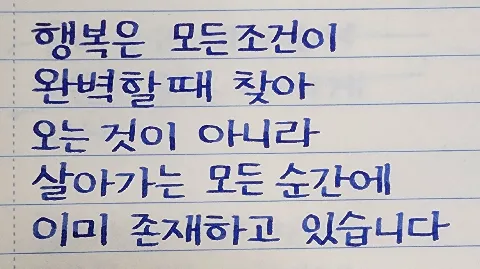 행복은 모든조건이
완벽할때 찾아
오는것이 아니라
살아가는 모든 순간에
이미 존재하고 있습니다